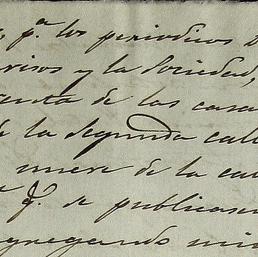 pª los periodicos D
risos y la Sociedad,
enta de las casa
la segunda call
nueve de la cal
qe. se publicase
gregando